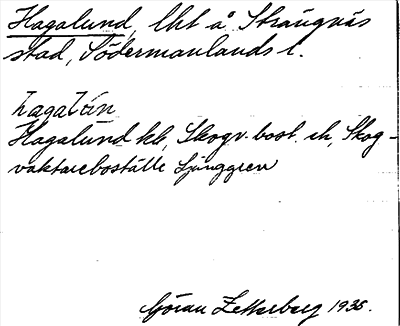 Hagalund, lht å Strängnäs
stad, Södermanlands l.
Hagalund kk, Skogv. bost. ek, Skog-
vaktareboställe Ljunggren
Göran Zetterberg 1935.